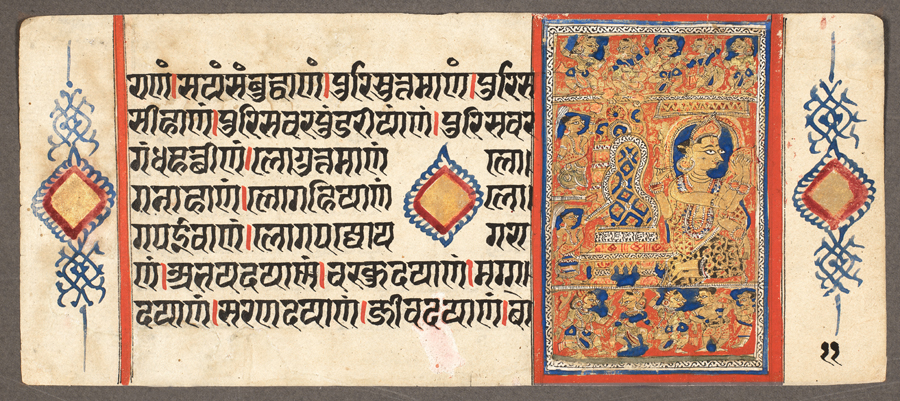 राणं।सयंसंबुद्धाणं।पुरिसुत्तमाणं।पुरिस
सीहाणं।पुरिसवरपुंडरीयाणं।पुरिसवर
गंधहत्थीणं।लोगुत्तमाणं लो
गनाहाणं।लोगहियाणं लो
गपईवाणं।लोगपज्जोय गरा
णं।अभयदयाणं।चक्खुदयाणं।मग्ग
दयाणं।सरणदयाणं।जीवदयाणं।बो